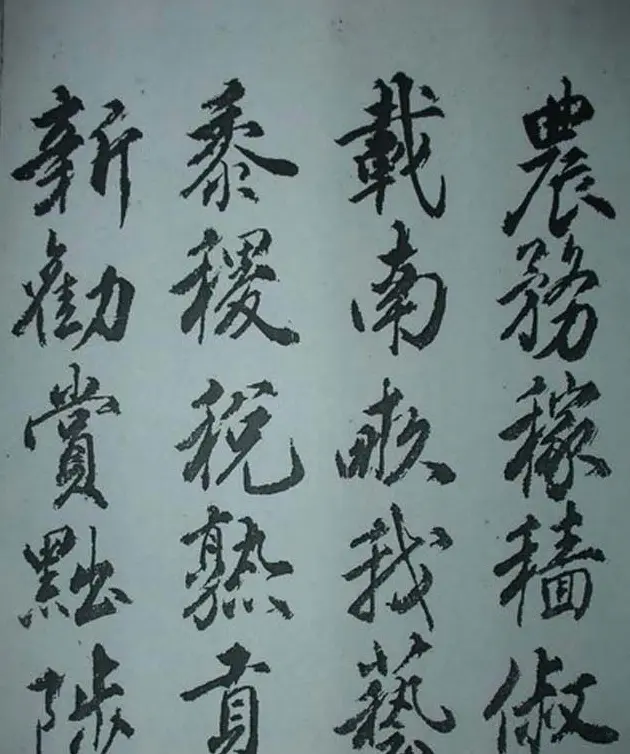 農務稼穡俶
載南畝我藝
黍稷稅熟貢
新勸賞黜陟